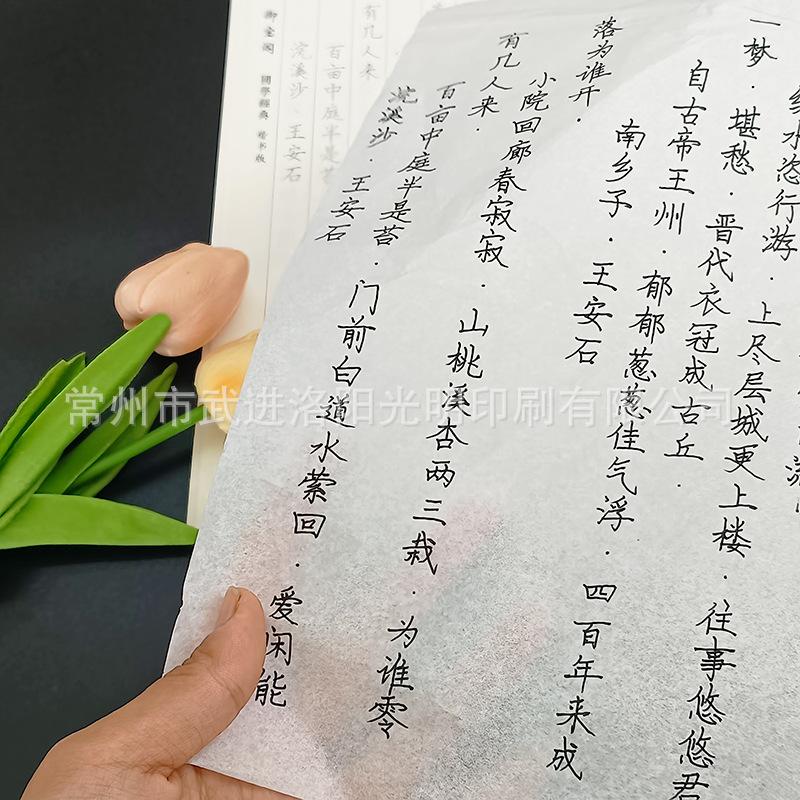 國學經典 楷书版
浣溪沙·王安石
百亩中庭半是苔
有几人来
浣溪沙·王安石
百亩中庭半是苔·门前白道水萦回·爱闲能
有几人来·小院回廊春寂寂·山桃溪杏两三栽·为谁零
落为谁开·
南乡子·王安石
自古帝王州·郁郁葱葱佳气浮·四百年来成
一梦·堪愁·晋代衣冠成古丘·
水恣行游·上尽层城更上楼·往事悠悠君
常州市武进洛阳光明印刷有限公司